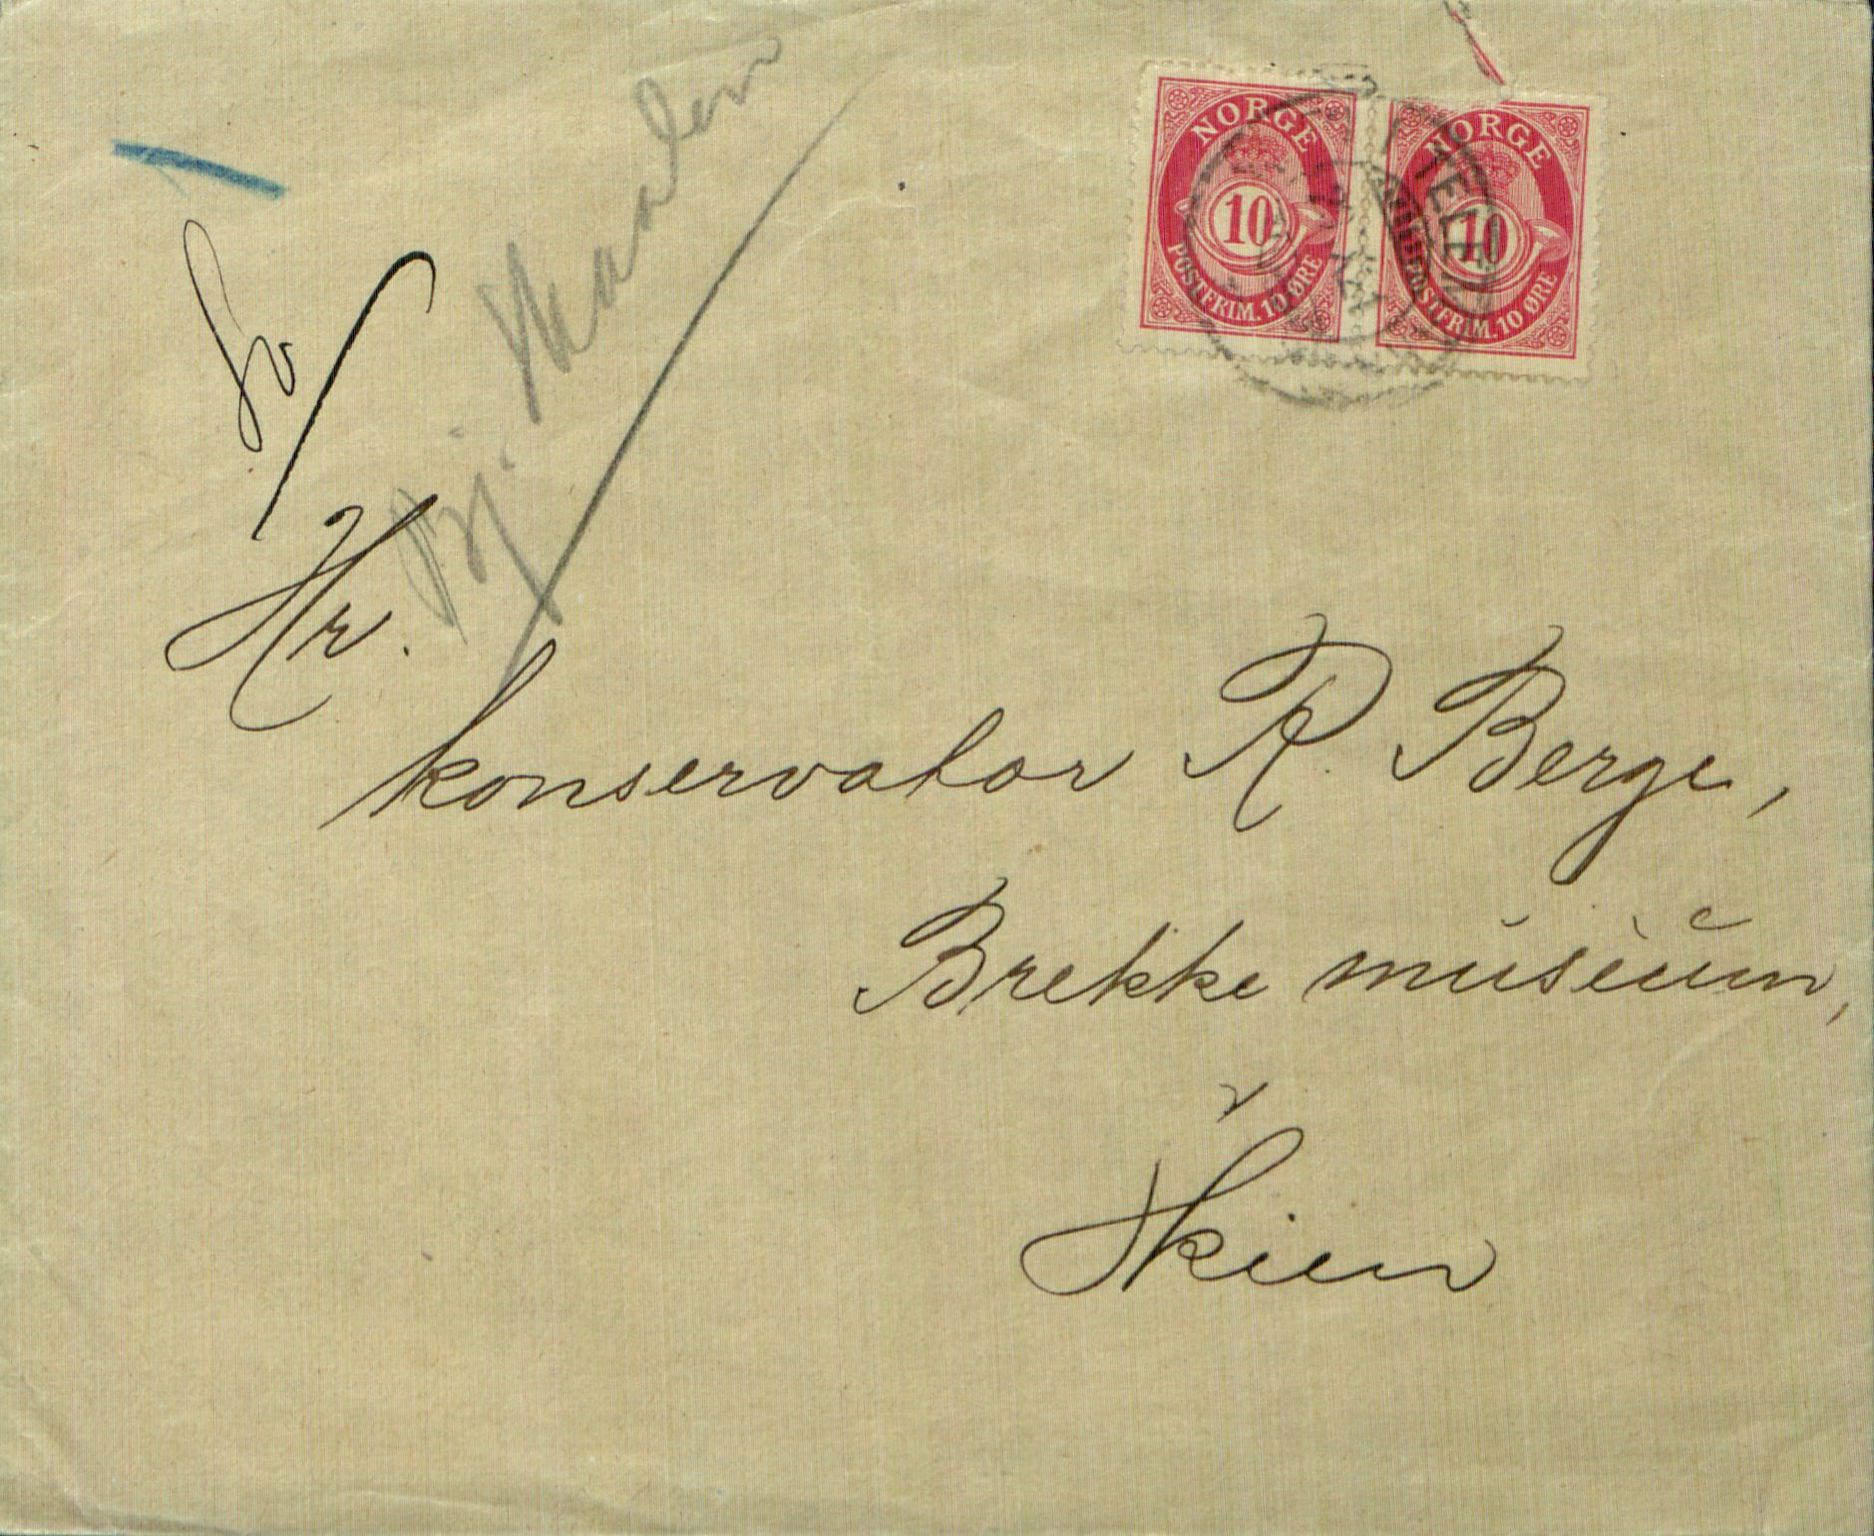 NORGE
10
POSTFRIM. 10 ØRE
NORGE
10
POSTFRIM. 10 ØRE
Hr.
konservator R. Berge,
Brekke museum,
Skien